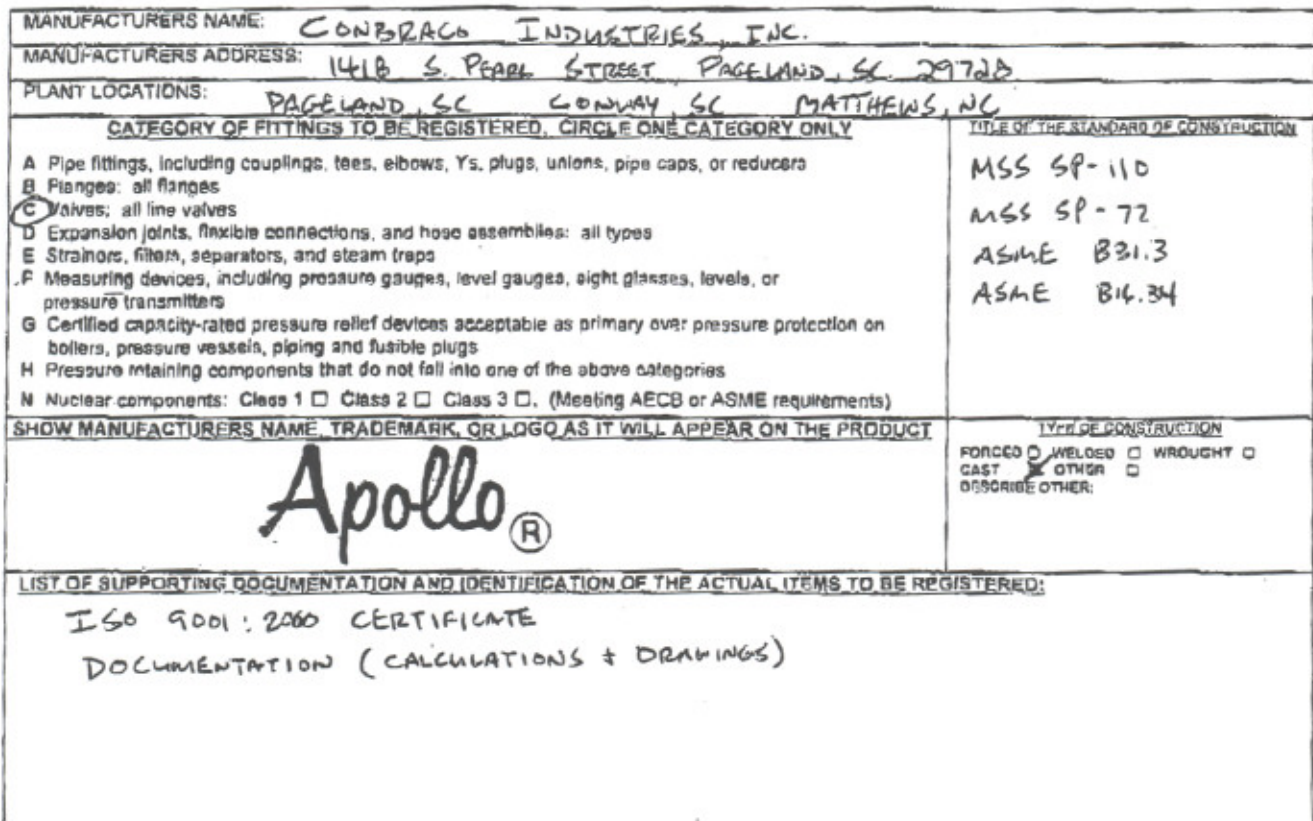 MANUFACTURERS NAME: CONBRACO INDUSTRIES, INC.
MANUFACTURERS ADDRESS: 1418 S. PEARL STREET PAGELAND, SC. 29728
PLANT LOCATIONS: PAGELAND, SC CONWAY, SC MATTHEWS, NC
CATEGORY OF FITTINGS TO BE REGISTERED, CIRCLE ONE CATEGORY ONLY
A Pipe fittings, including couplings, tees, elbows, Ys, plugs, unions, pipe caps, or reducers
B Flanges: all flanges
C Valves: all line valves
D Expansion joints, flexible connections, and hose assemblies: all types
E Strainers, filters, separators, and steam traps
F Measuring devices, including pressure gauges, level gauges, sight glasses, levels, or
pressure transmitters
G Certified capacity-rated pressure relief devices acceptable as primary over pressure protection on
boilers, pressure vessels, piping and fusible plugs
H Pressure retaining components that do not fall into one of the above categories
N Nuclear components: Class 1 □ Class 2 □ Class 3 □. (Meeting AECB or ASME requirements)
TITLE OF THE STANDARD OF CONSTRUCTION
MSS SP-110
MSS SP-72
ASME B31.3
ASME B16.34
SHOW MANUFACTURERS NAME, TRADEMARK, OR LOGO AS IT WILL APPEAR ON THE PRODUCT
Apollo®
TYPE OF CONSTRUCTION
FORGED □ WELDED □ WROUGHT □
CAST ☒ OTHER □
DESCRIBE OTHER:
LIST OF SUPPORTING DOCUMENTATION AND IDENTIFICATION OF THE ACTUAL ITEMS TO BE REGISTERED:
ISO 9001:2000 CERTIFICATE
DOCUMENTATION (CALCULATIONS + DRAWINGS)